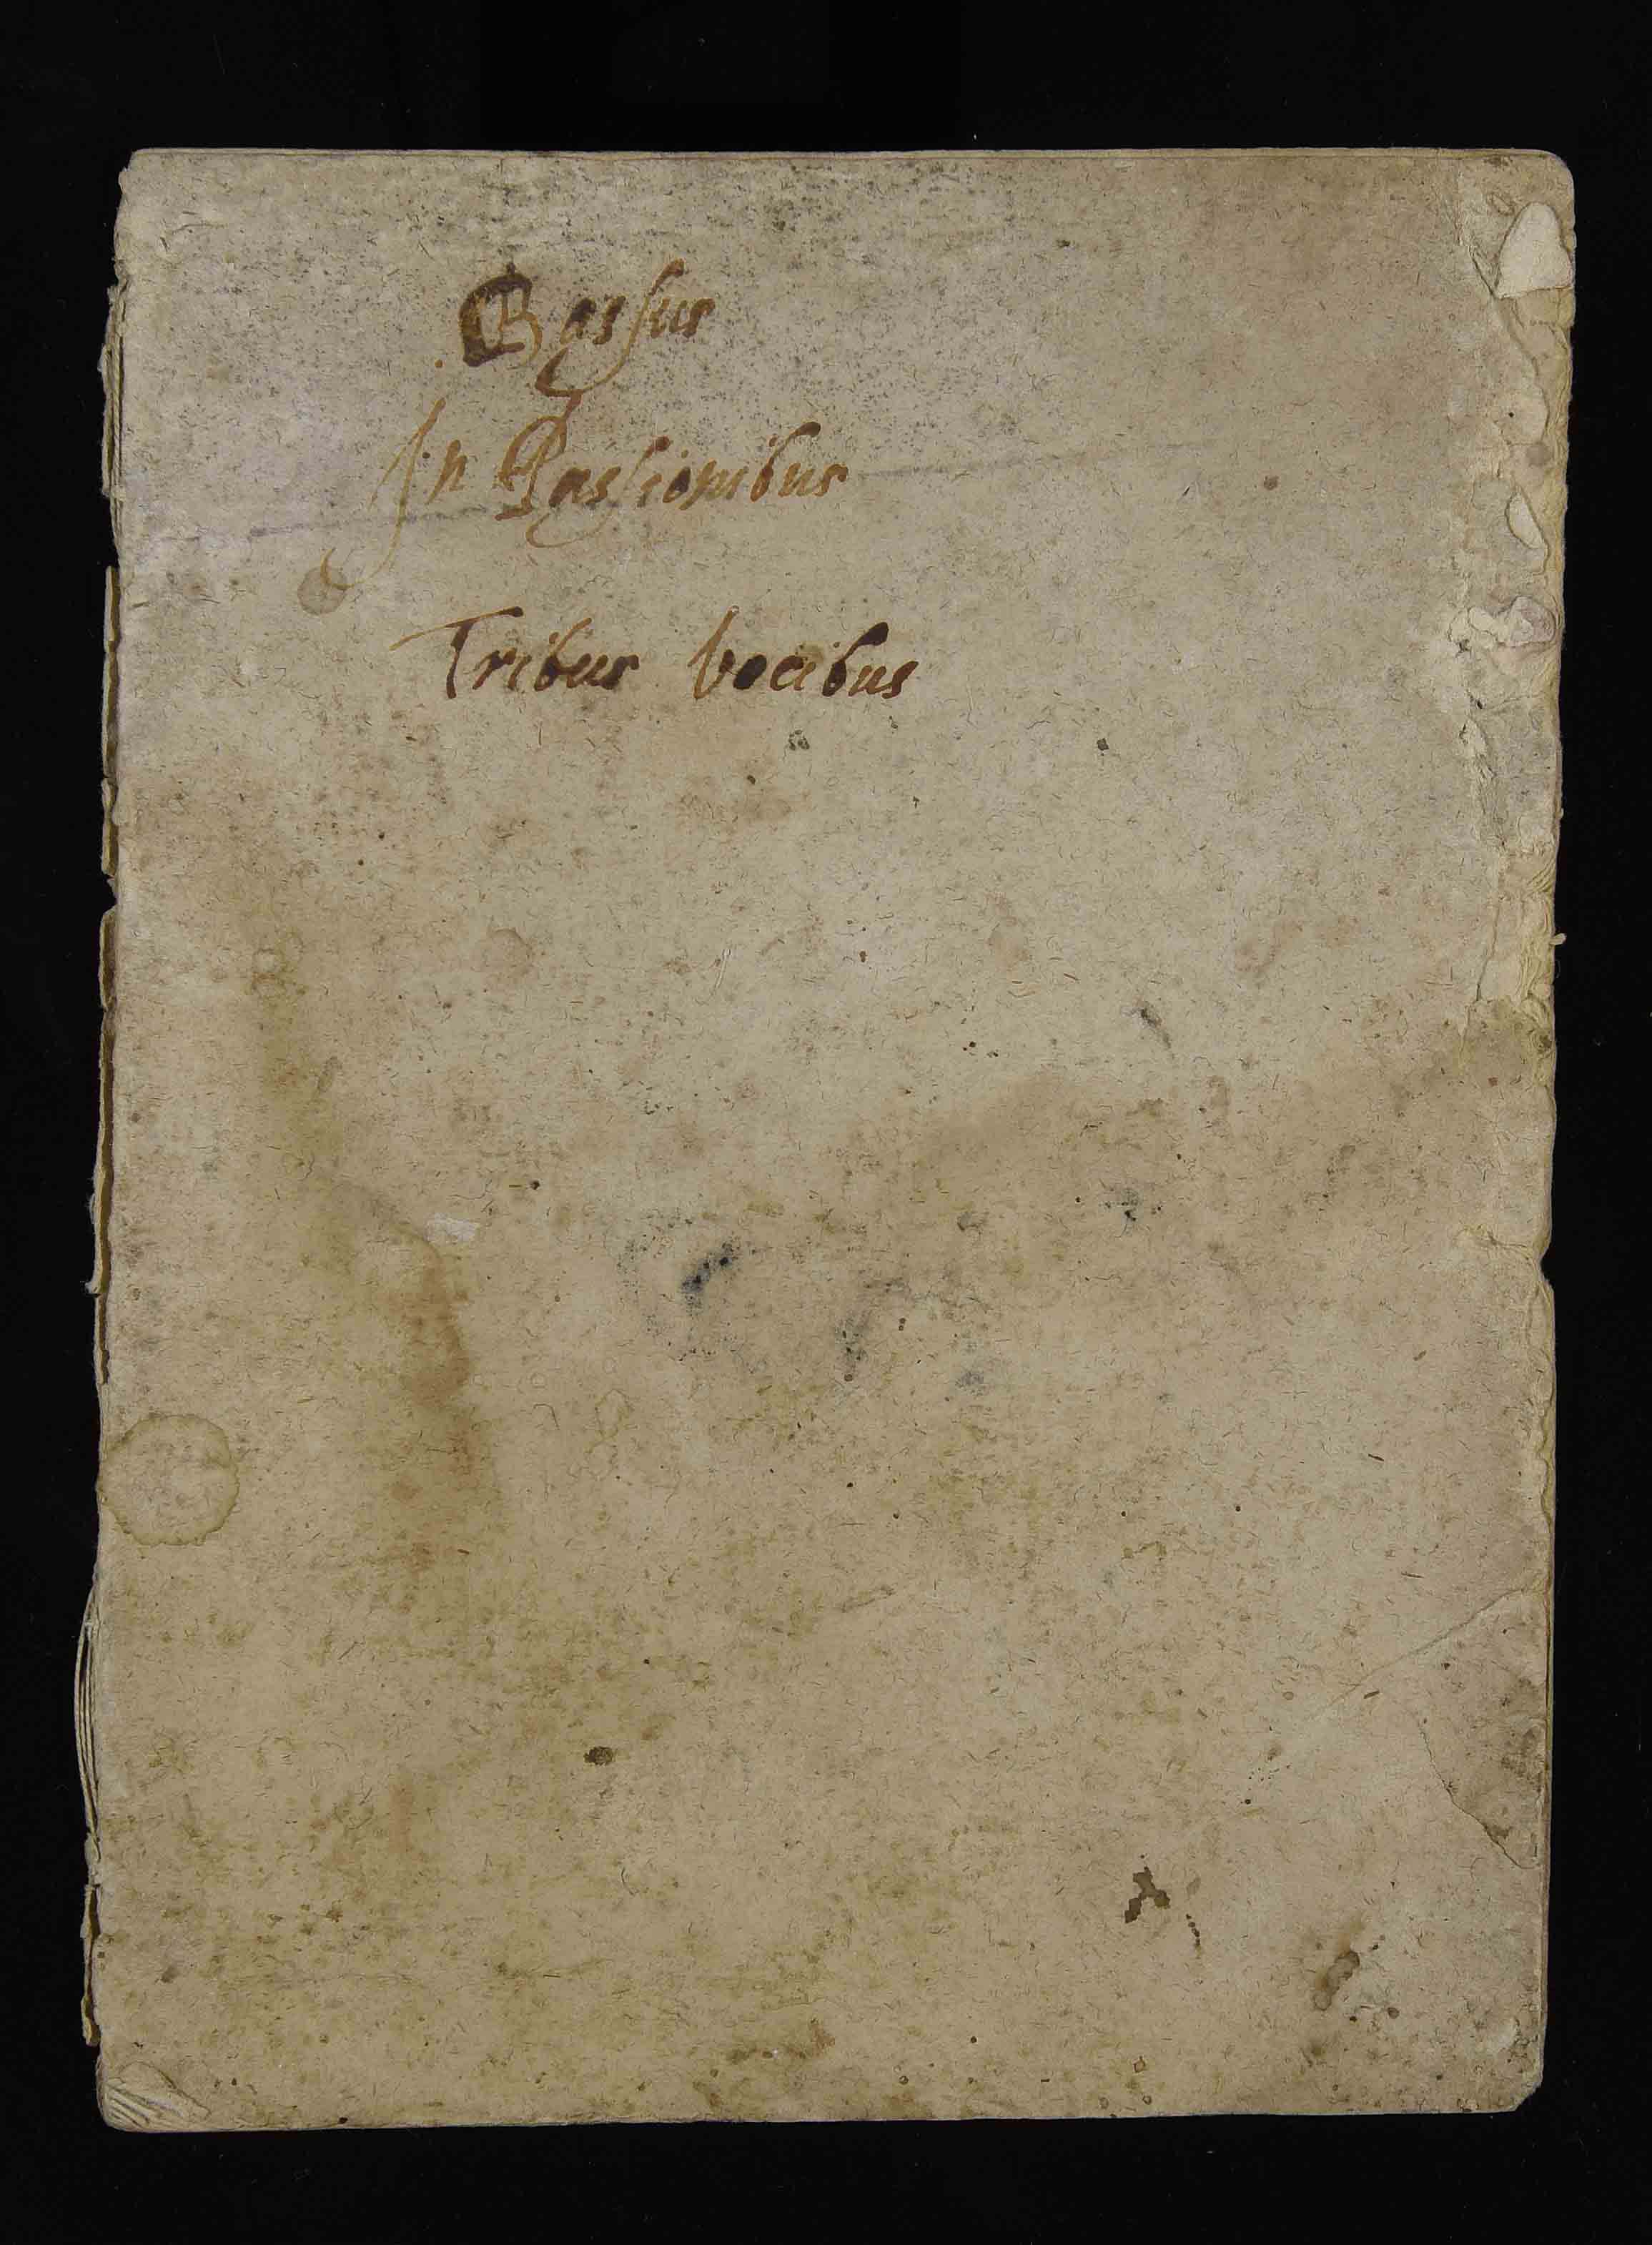 Bassus
In Passionibus
Tribus vocibus